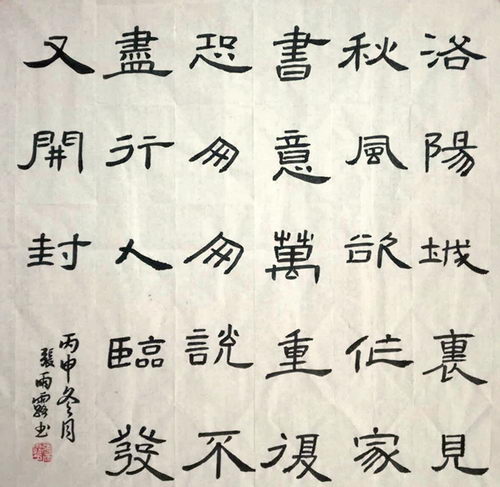 洛陽城裏見
秋風欲作家
書意萬重復
恐匆匆說不
盡行人臨發
又開封
丙申冬月
雨露书